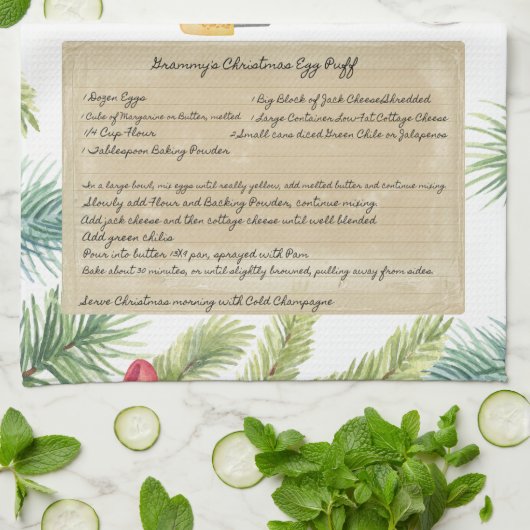 Grammy's Christmas Egg Puff
1 Dozen Eggs
1 Big Block of Jack Cheese,Shredded
1 Cube of Margarine or Butter, melted
1 Large Container Low-Fat Cottage Cheese
1/4 Cup Flour
2 Small cans diced Green Chile or Jalapenos
1 Tablespoon Baking Powder
In a large bowl, mix eggs until really yellow, add melted butter and continue mixing.
Slowly add Flour and Backing Powder, continue mixing.
Add jack cheese and then cottage cheese until well blended
Add green chilis
Pour into butter 13X9 pan, sprayed with Pam
Bake about 30 minutes, or until slightly browned, pulling away from sides.
Serve Christmas morning with Cold Champagne